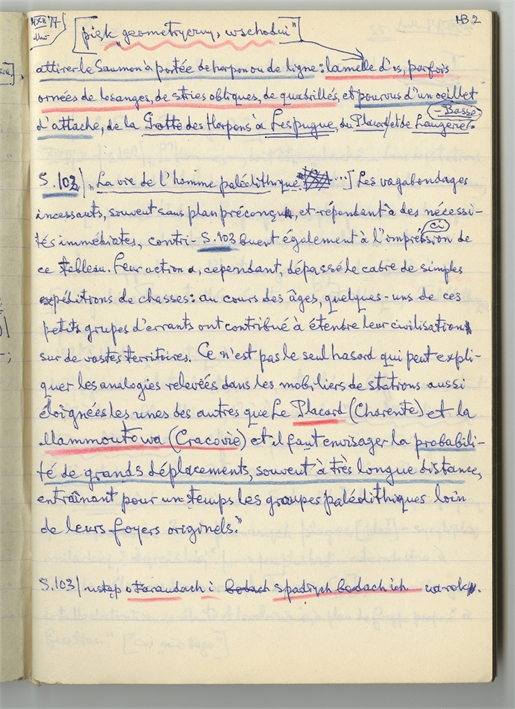 HB 2
[piśk geometryczny, wschodni"]
attirer le Saumon à portée de harpon ou de ligne: lamelle d'os, parfois
ornées de losanges, de stries obliques, de quadrillés, et pourvus d'un oeillet
d'attache, de la Grotte des Harpons à Lespugue, du Placard et de Laugerie-
-Basse.
S. 102/ "La vie de l'homme paléolithique ...] Les vagabondages
incessants, souvent sans plan préconçu, et répondant à des nécessi-
tés immédiates, contri- S.103 buent également à l'impression de
ci
ce tableau. Leur action a, cependant, dépassé le cabre de simples
expéditions de chasses: au cours des âges, quelques-uns de ces
petits grupes d'errants ont contribué à étendre leur civilisation
sur de vastes territoires. Ce n'est pas le seul hasard qui peut expli-
quer les analogies relevées dans les mobiliers de stations aussi
éloignées les unes des autres que Le Placard (Charente) et la
Mammoutowa (Cracovie) et il faut envisager la probabili-
té de grands déplacements, souvent à très longue distance,
entraînant pour un temps les groupes paléolithiques loin
de leurs foyers originels."
S.103/ ustęp o